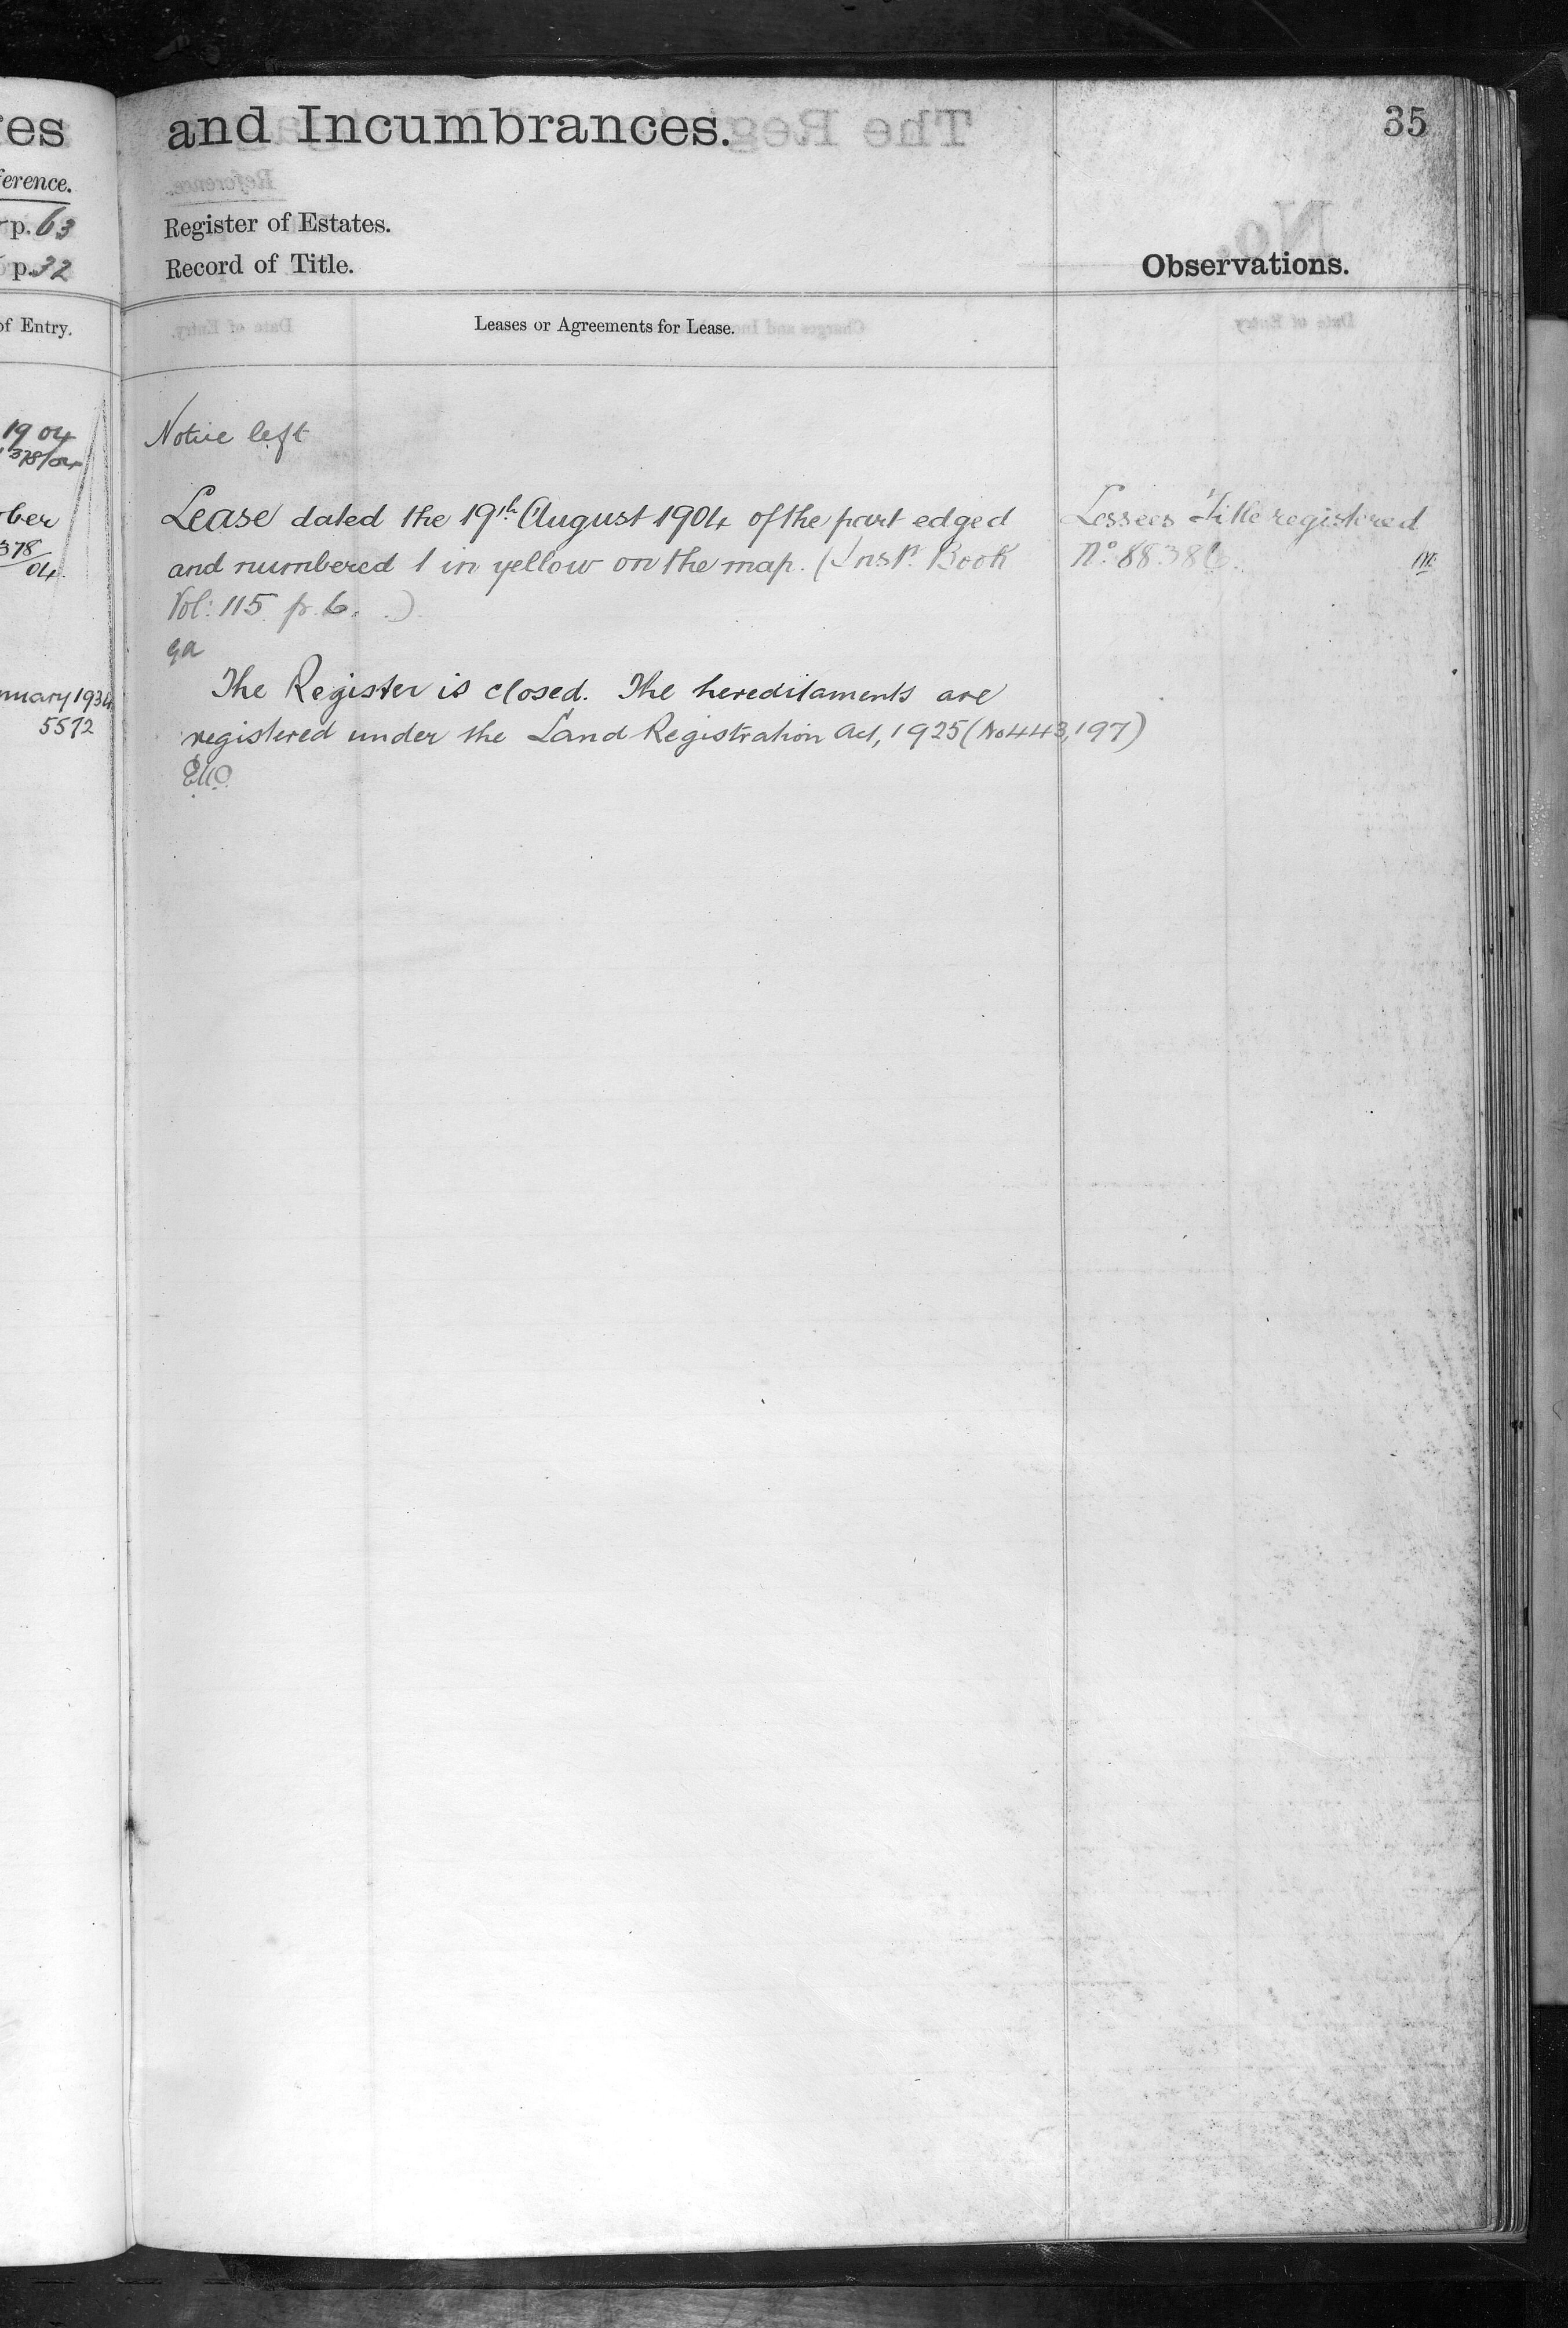 es
and Incumbrances.
35
erence.
p. 63
Register of Estates.
p. 32
Record of Title.
Observations.
of Entry.
Leases or Agreements for Lease.
1904
378/04
Notice left
ber
378/04
Lease dated the 19th August 1904 of the part edged
and numbered 1 in yellow on the map. (Instt. Book
Vol: 115 p. 6. )
Ga
Lessees Title registered
No. 88386.
nuary 1934
5572
The Register is closed. The hereditaments are
registered under the Land Registration Act, 1925 (No 443,197)